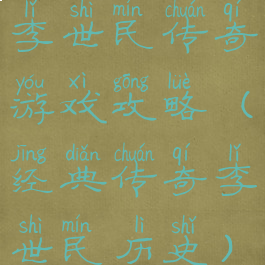 lǐ shì mín chuán qí
李世民传奇
yóu xì gōng lüè
游戏攻略（
jīng diǎn chuán qí lǐ
经典传奇李
shì mín lì shǐ
世民历史）